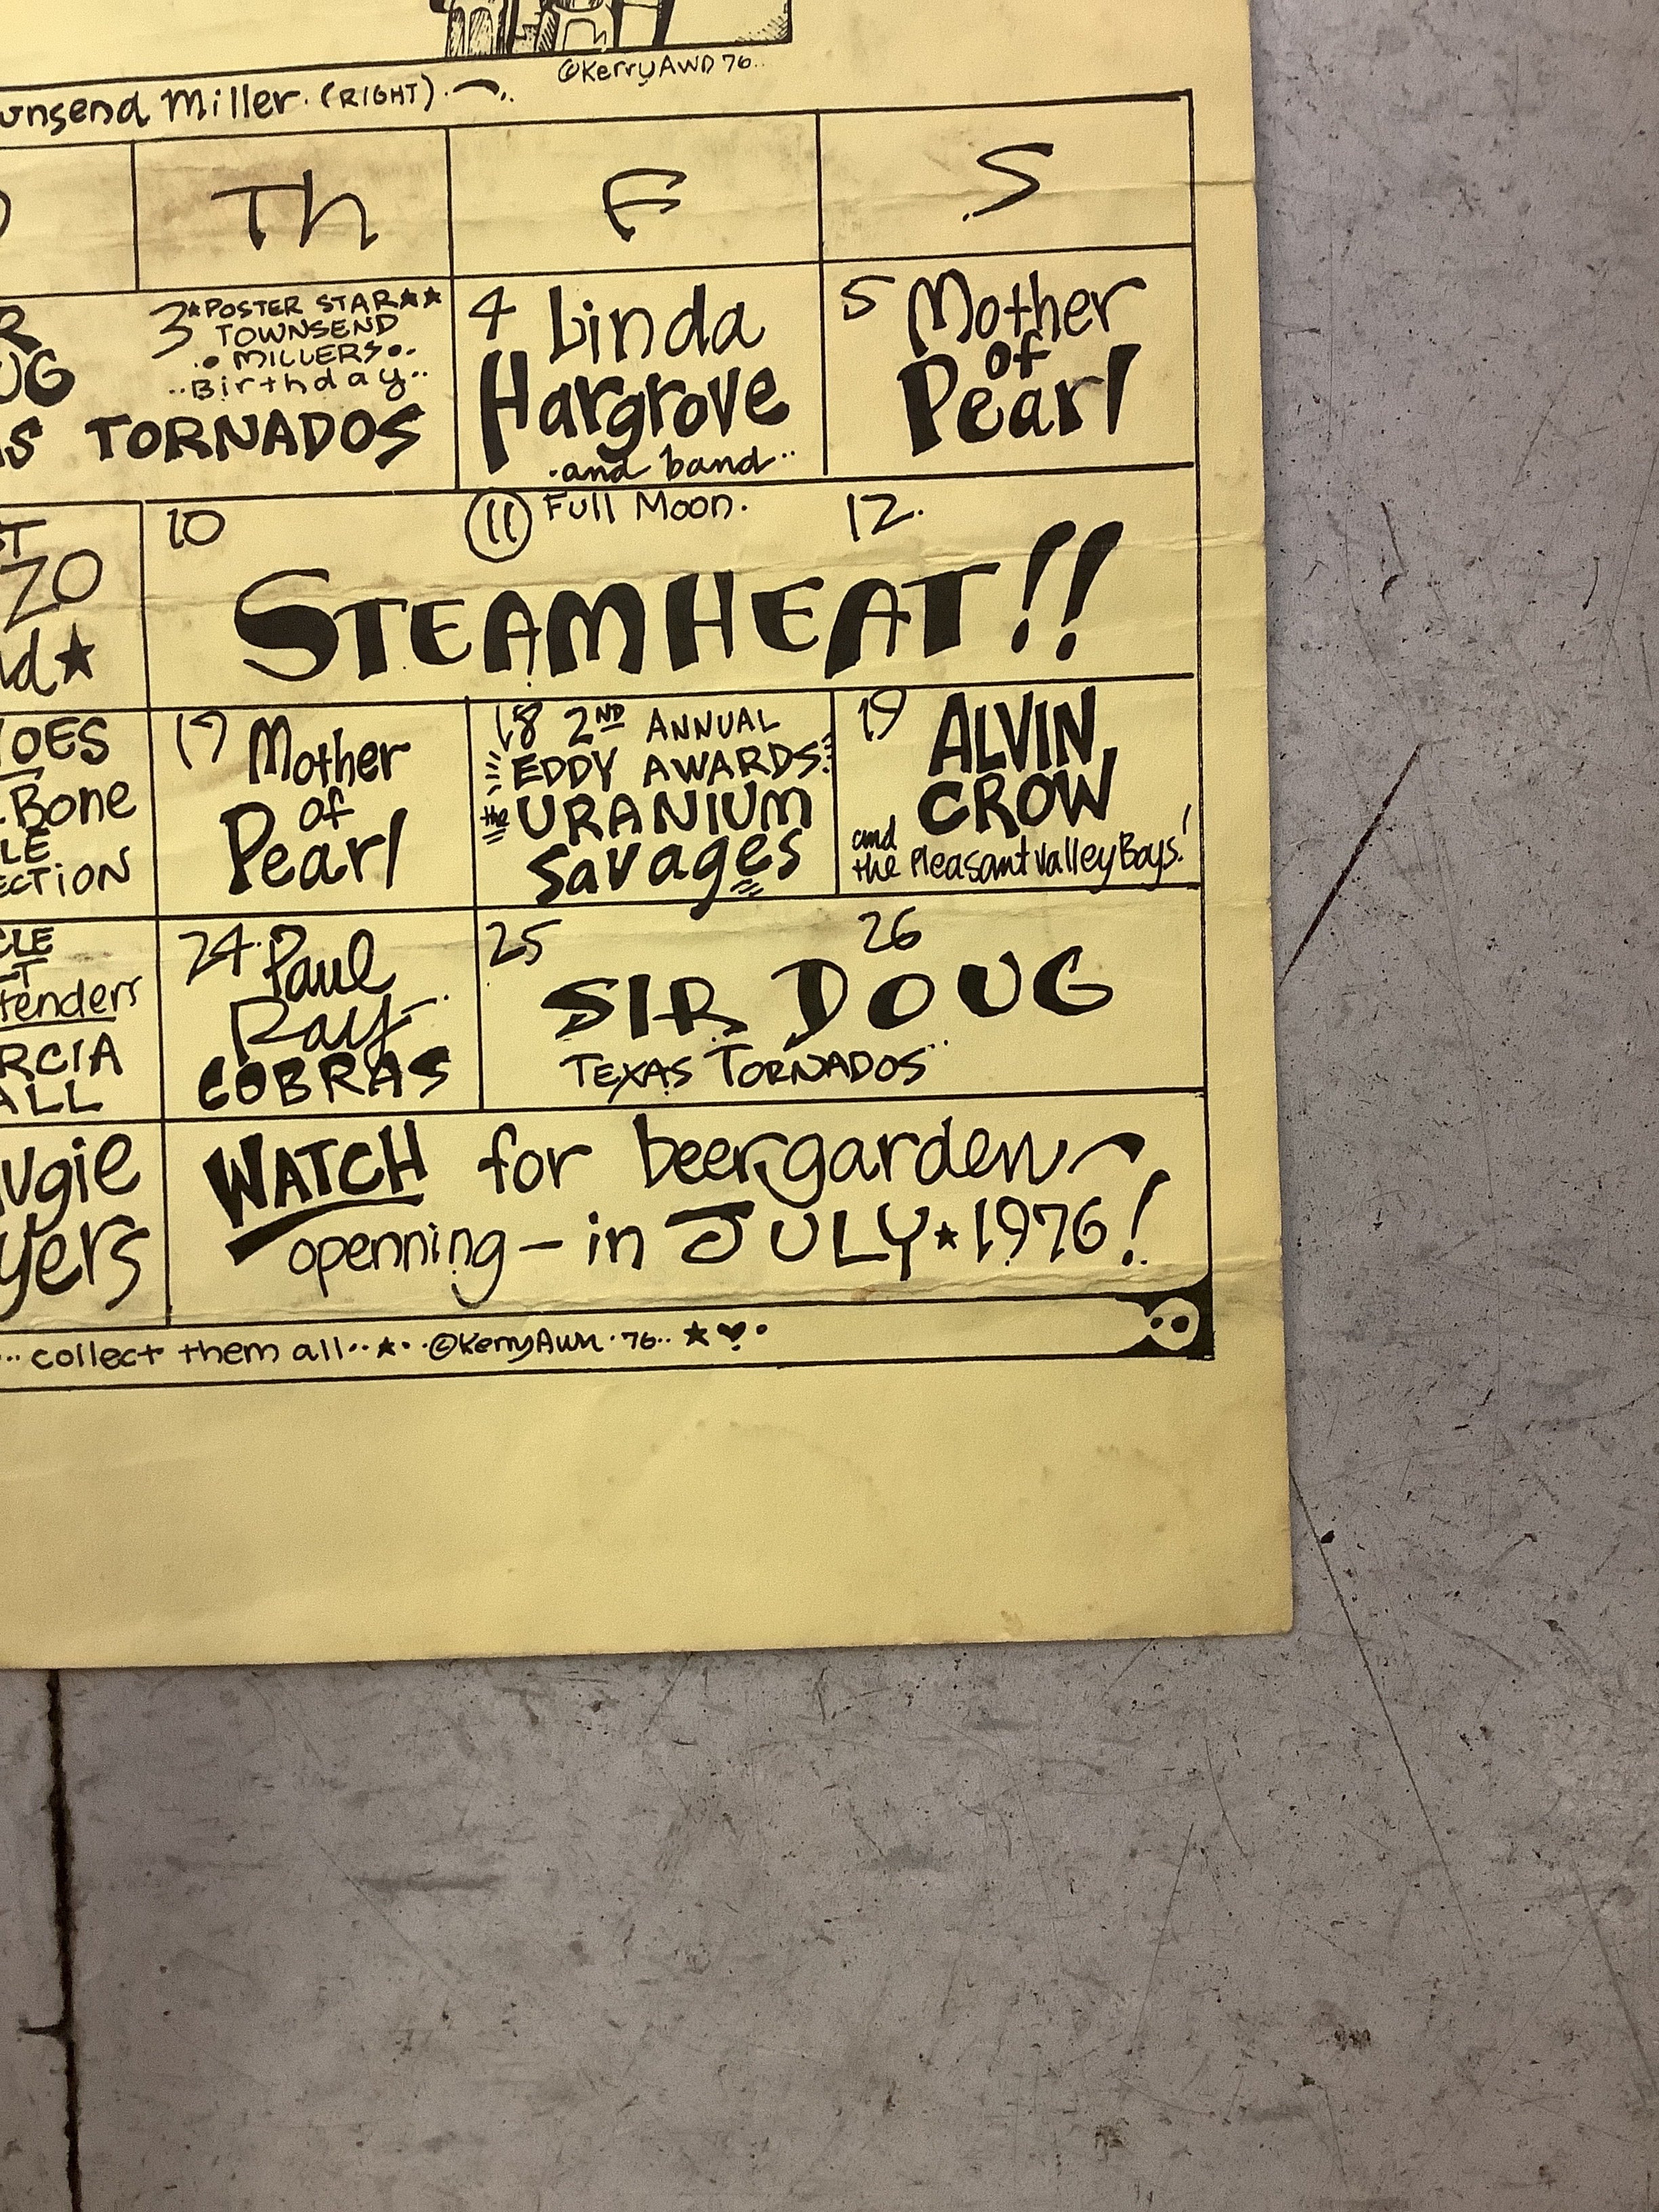 ©KerryAwn 76..
Miller. (RIGHT)
Th F S
3 *POSTER STAR★★
TOWNSEND
MILLERS
..Birthday..
TORNADOS
4 Linda
Hargrove
.and band..
5 Mother
of
Pearl
ZO
10
11 Full Moon.
12.
STEAMHEAT!!
Bone
17 Mother
of
Pearl
18 2ND ANNUAL
EDDY AWARDS
the URANIUM
Savages
19 ALVIN
CROW
and
the Pleasant Valley Boys!
24. Paul
Ray
COBRAS
25 26
SIR DOUG
TEXAS TORNADOS..
WATCH for beergarden
openning – in JULY★1976!
... collect them all..★.. ©KerryAwn '76.. ★♥.